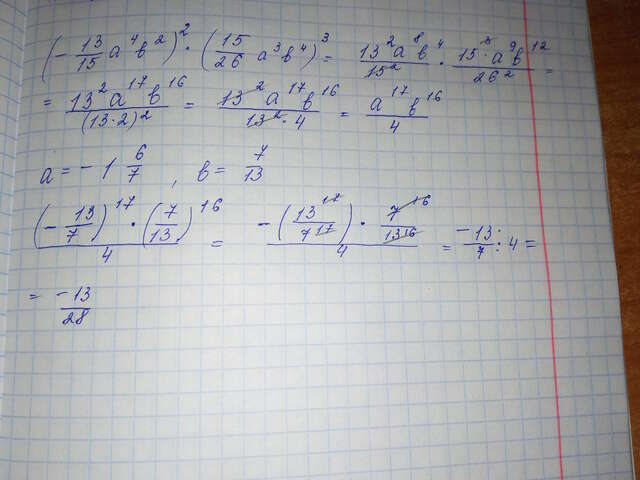 (-13/15 a⁴b²)² · (15/26 a³b⁴)³ = 13²a⁸b⁴/15² · 15·a⁹b¹²/26² =
= 13²a¹⁷b¹⁶/(13·2)² = 13²a¹⁷b¹⁶/13²·4 = a¹⁷b¹⁶/4
a = -1 6/7, b = 7/13
(-13/7)¹⁷·(7/13)¹⁶/4 = -(13¹⁷/7¹⁷)·7¹⁶/13¹⁶/4 = -13/7 : 4 =
= -13/28